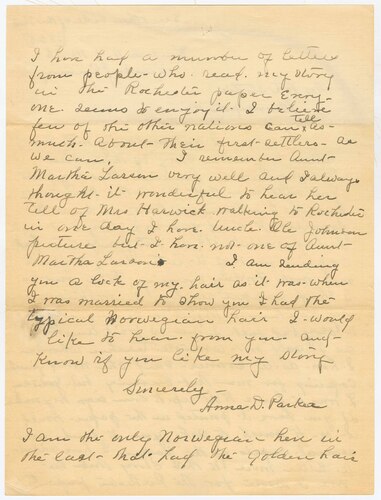 I have had a number of letters
from people who read my story
in the Rochester paper Every-
one seems to enjoy it. I believe
few of the other nations can tell as
much about their first settlers as
we can. I remember Aunt
Martha Larson very well and I always
thought it wonderful to hear her
tell of Mrs Harwick walking to Rochester
in one day I have Uncle Ole Johnson
picture but I have not one of Aunt
Martha Larson's I am sending
you a lock of my hair as it was when
I was married to show you I had the
typical Norwegian hair I would
like to hear from you and
know if you like my story
Sincerely
Anna D. Parker
I am the only Norwegian here in
the east that had the golden hair